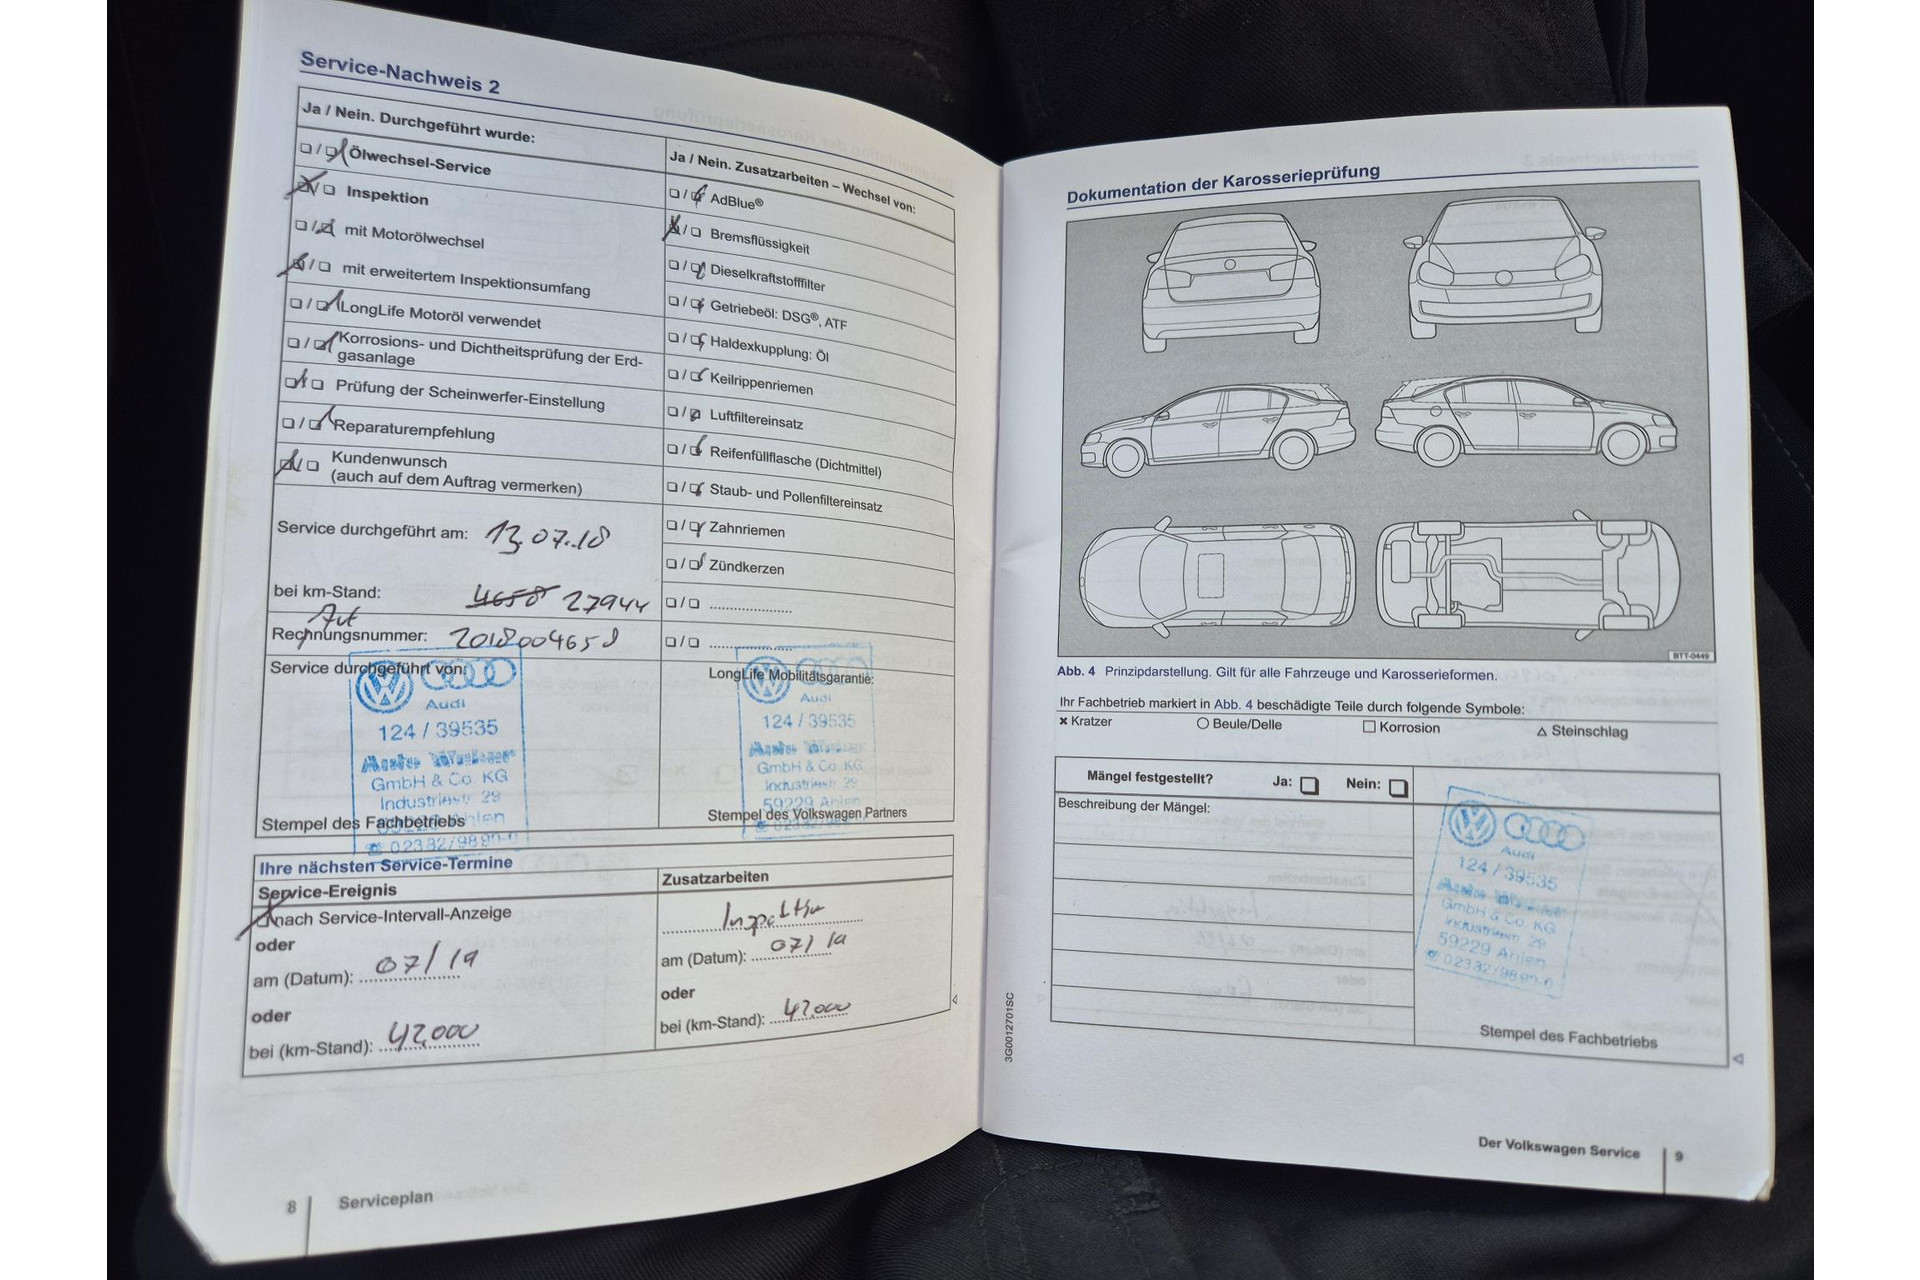 Service-Nachweis 2
Ja / Nein. Durchgeführt wurde:
❏ / ❏ Ölwechsel-Service
❏ / ❏ Inspektion
❏ / ❏ mit Motorölwechsel
❏ / ❏ mit erweitertem Inspektionsumfang
❏ / ❏ LongLife Motoröl verwendet
❏ / ❏ Korrosions- und Dichtheitsprüfung der Erd-
gasanlage
❏ / ❏ Prüfung der Scheinwerfer-Einstellung
❏ / ❏ Reparaturempfehlung
❏ / ❏ Kundenwunsch
(auch auf dem Auftrag vermerken)
Service durchgeführt am: 13.07.18
bei km-Stand: 4658 27944
Rechnungsnummer: 2018004658
Service durchgeführt von:
Audi
124 / 39535
GmbH & Co. KG
Industriestr. 29
59229 Ahlen
☎ 02382/9890-0
Stempel des Fachbetriebs
Ja / Nein. Zusatzarbeiten – Wechsel von:
❏ / ❏ AdBlue®
❏ / ❏ Bremsflüssigkeit
❏ / ❏ Dieselkraftstofffilter
❏ / ❏ Getriebeöl: DSG®, ATF
❏ / ❏ Haldexkupplung: Öl
❏ / ❏ Keilrippenriemen
❏ / ❏ Luftfiltereinsatz
❏ / ❏ Reifenfüllflasche (Dichtmittel)
❏ / ❏ Staub- und Pollenfiltereinsatz
❏ / ❏ Zahnriemen
❏ / ❏ Zündkerzen
❏ / ❏ ....................
❏ / ❏ ....................
LongLife Mobilitätsgarantie:
Audi
124 / 39535
GmbH & Co. KG
Industriestr. 29
59229 Ahlen
☎ 02382/9890-0
Stempel des Volkswagen Partners
Ihre nächsten Service-Termine
Service-Ereignis
❏ nach Service-Intervall-Anzeige
oder
am (Datum): 07/19
oder
bei (km-Stand): 42.000
Zusatzarbeiten
Inspektion
am (Datum): 07/19
oder
bei (km-Stand): 42.000
8 Serviceplan
Dokumentation der Karosserieprüfung
BTT-0449
Abb. 4 Prinzipdarstellung. Gilt für alle Fahrzeuge und Karosserieformen.
Ihr Fachbetrieb markiert in Abb. 4 beschädigte Teile durch folgende Symbole:
× Kratzer ○ Beule/Delle □ Korrosion △ Steinschlag
Mängel festgestellt? Ja: ❏ Nein: ❏
Beschreibung der Mängel:
Audi
124 / 39535
GmbH & Co. KG
Industriestr. 29
59229 Ahlen
☎ 02382/9890-0
Stempel des Fachbetriebs
3G0012701SC
Der Volkswagen Service 9